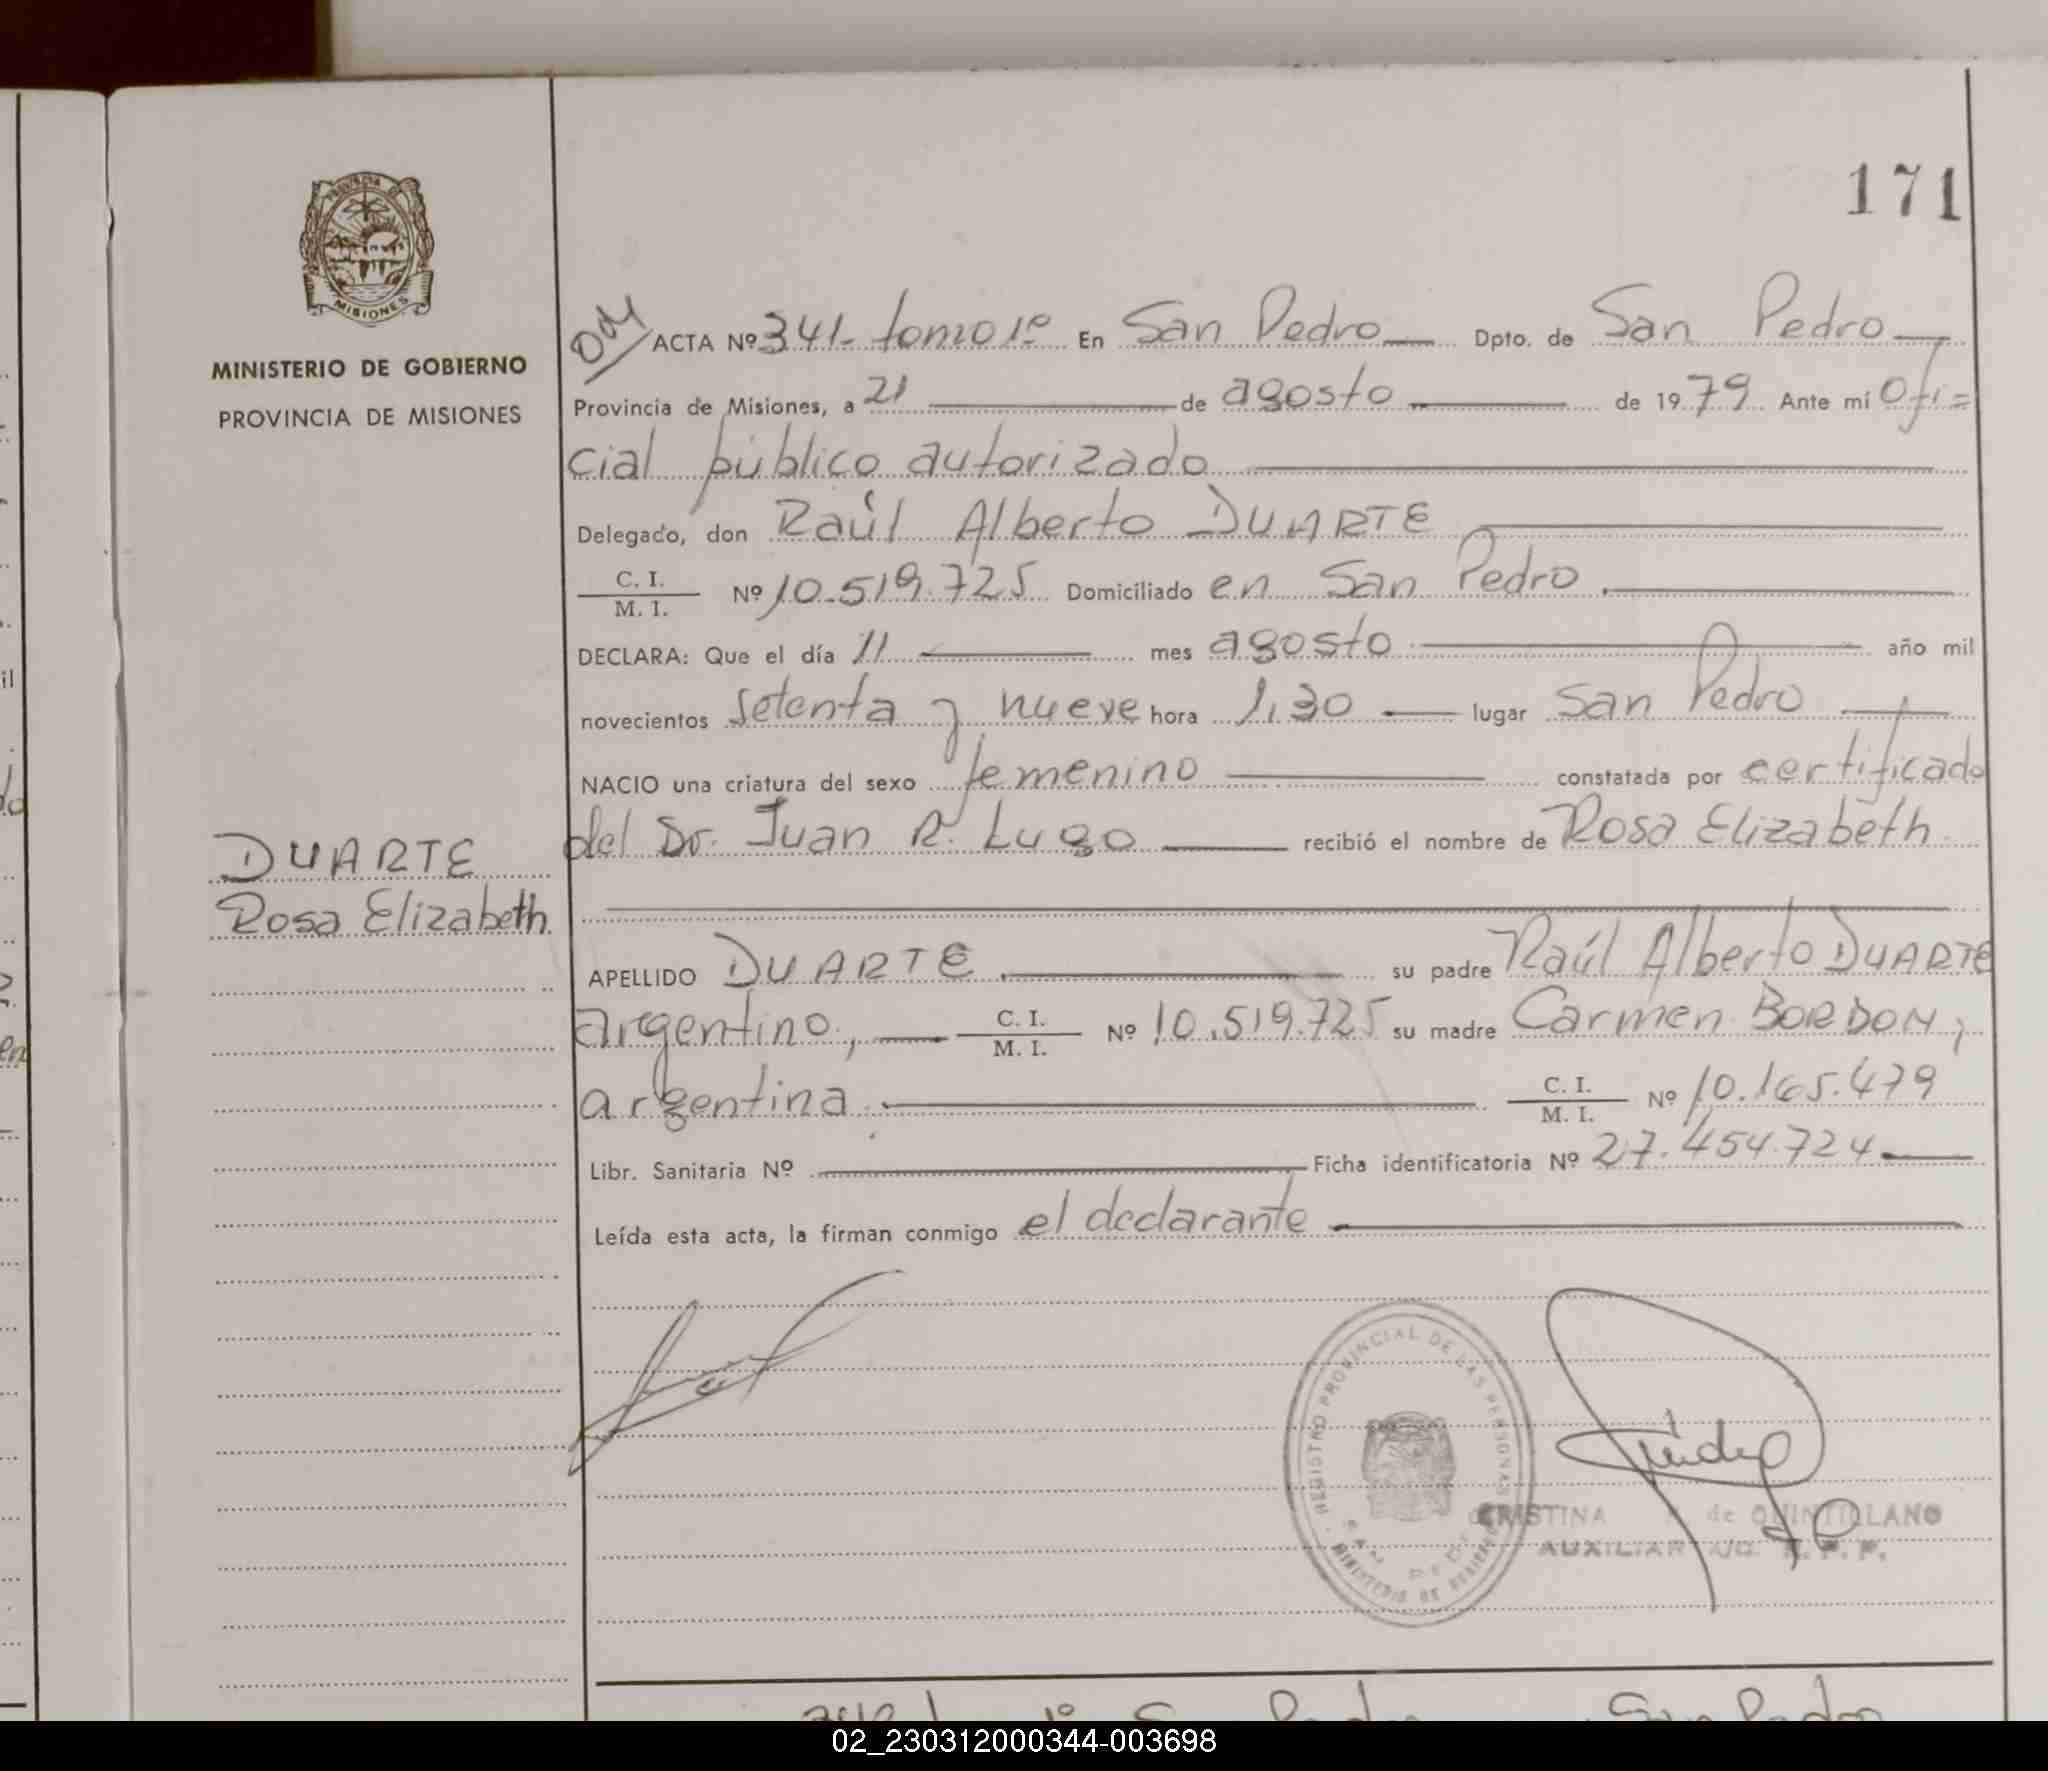 171
PROVINCIA DE
MISIONES
MINISTERIO DE GOBIERNO
PROVINCIA DE MISIONES
ACTA Nº 341- tomo 1º En San Pedro Dpto. de San Pedro
Provincia de Misiones, a 21 de agosto de 1979 Ante mí Ofi=
cial público autorizado
Delegado, don Raúl Alberto DUARTE
C. I.
M. I. Nº 10.519.725 Domiciliado en San Pedro.
DECLARA: Que el día 11 mes agosto año mil
novecientos setenta y nueve hora 1,30 lugar San Pedro
NACIO una criatura del sexo femenino constatada por certificado
del Dr. Juan R. Lugo recibió el nombre de Rosa Elizabeth
DUARTE
Rosa Elizabeth
APELLIDO DUARTE su padre Raúl Alberto DUARTE
argentino, C. I. M. I. Nº 10.519.725 su madre Carmen BORDON,
argentina C. I. M. I. Nº 10.165.479
Libr. Sanitaria Nº Ficha identificatoria Nº 27.454.724
Leída esta acta, la firman conmigo el declarante
REGISTRO PROVINCIAL DE LAS PERSONAS
SAN PEDRO
MINISTERIO DE GOBIERNO
CRISTINA de QUINTILLANO
AUXILIAR
San Pedro San Pedro
02_230312000344-003698